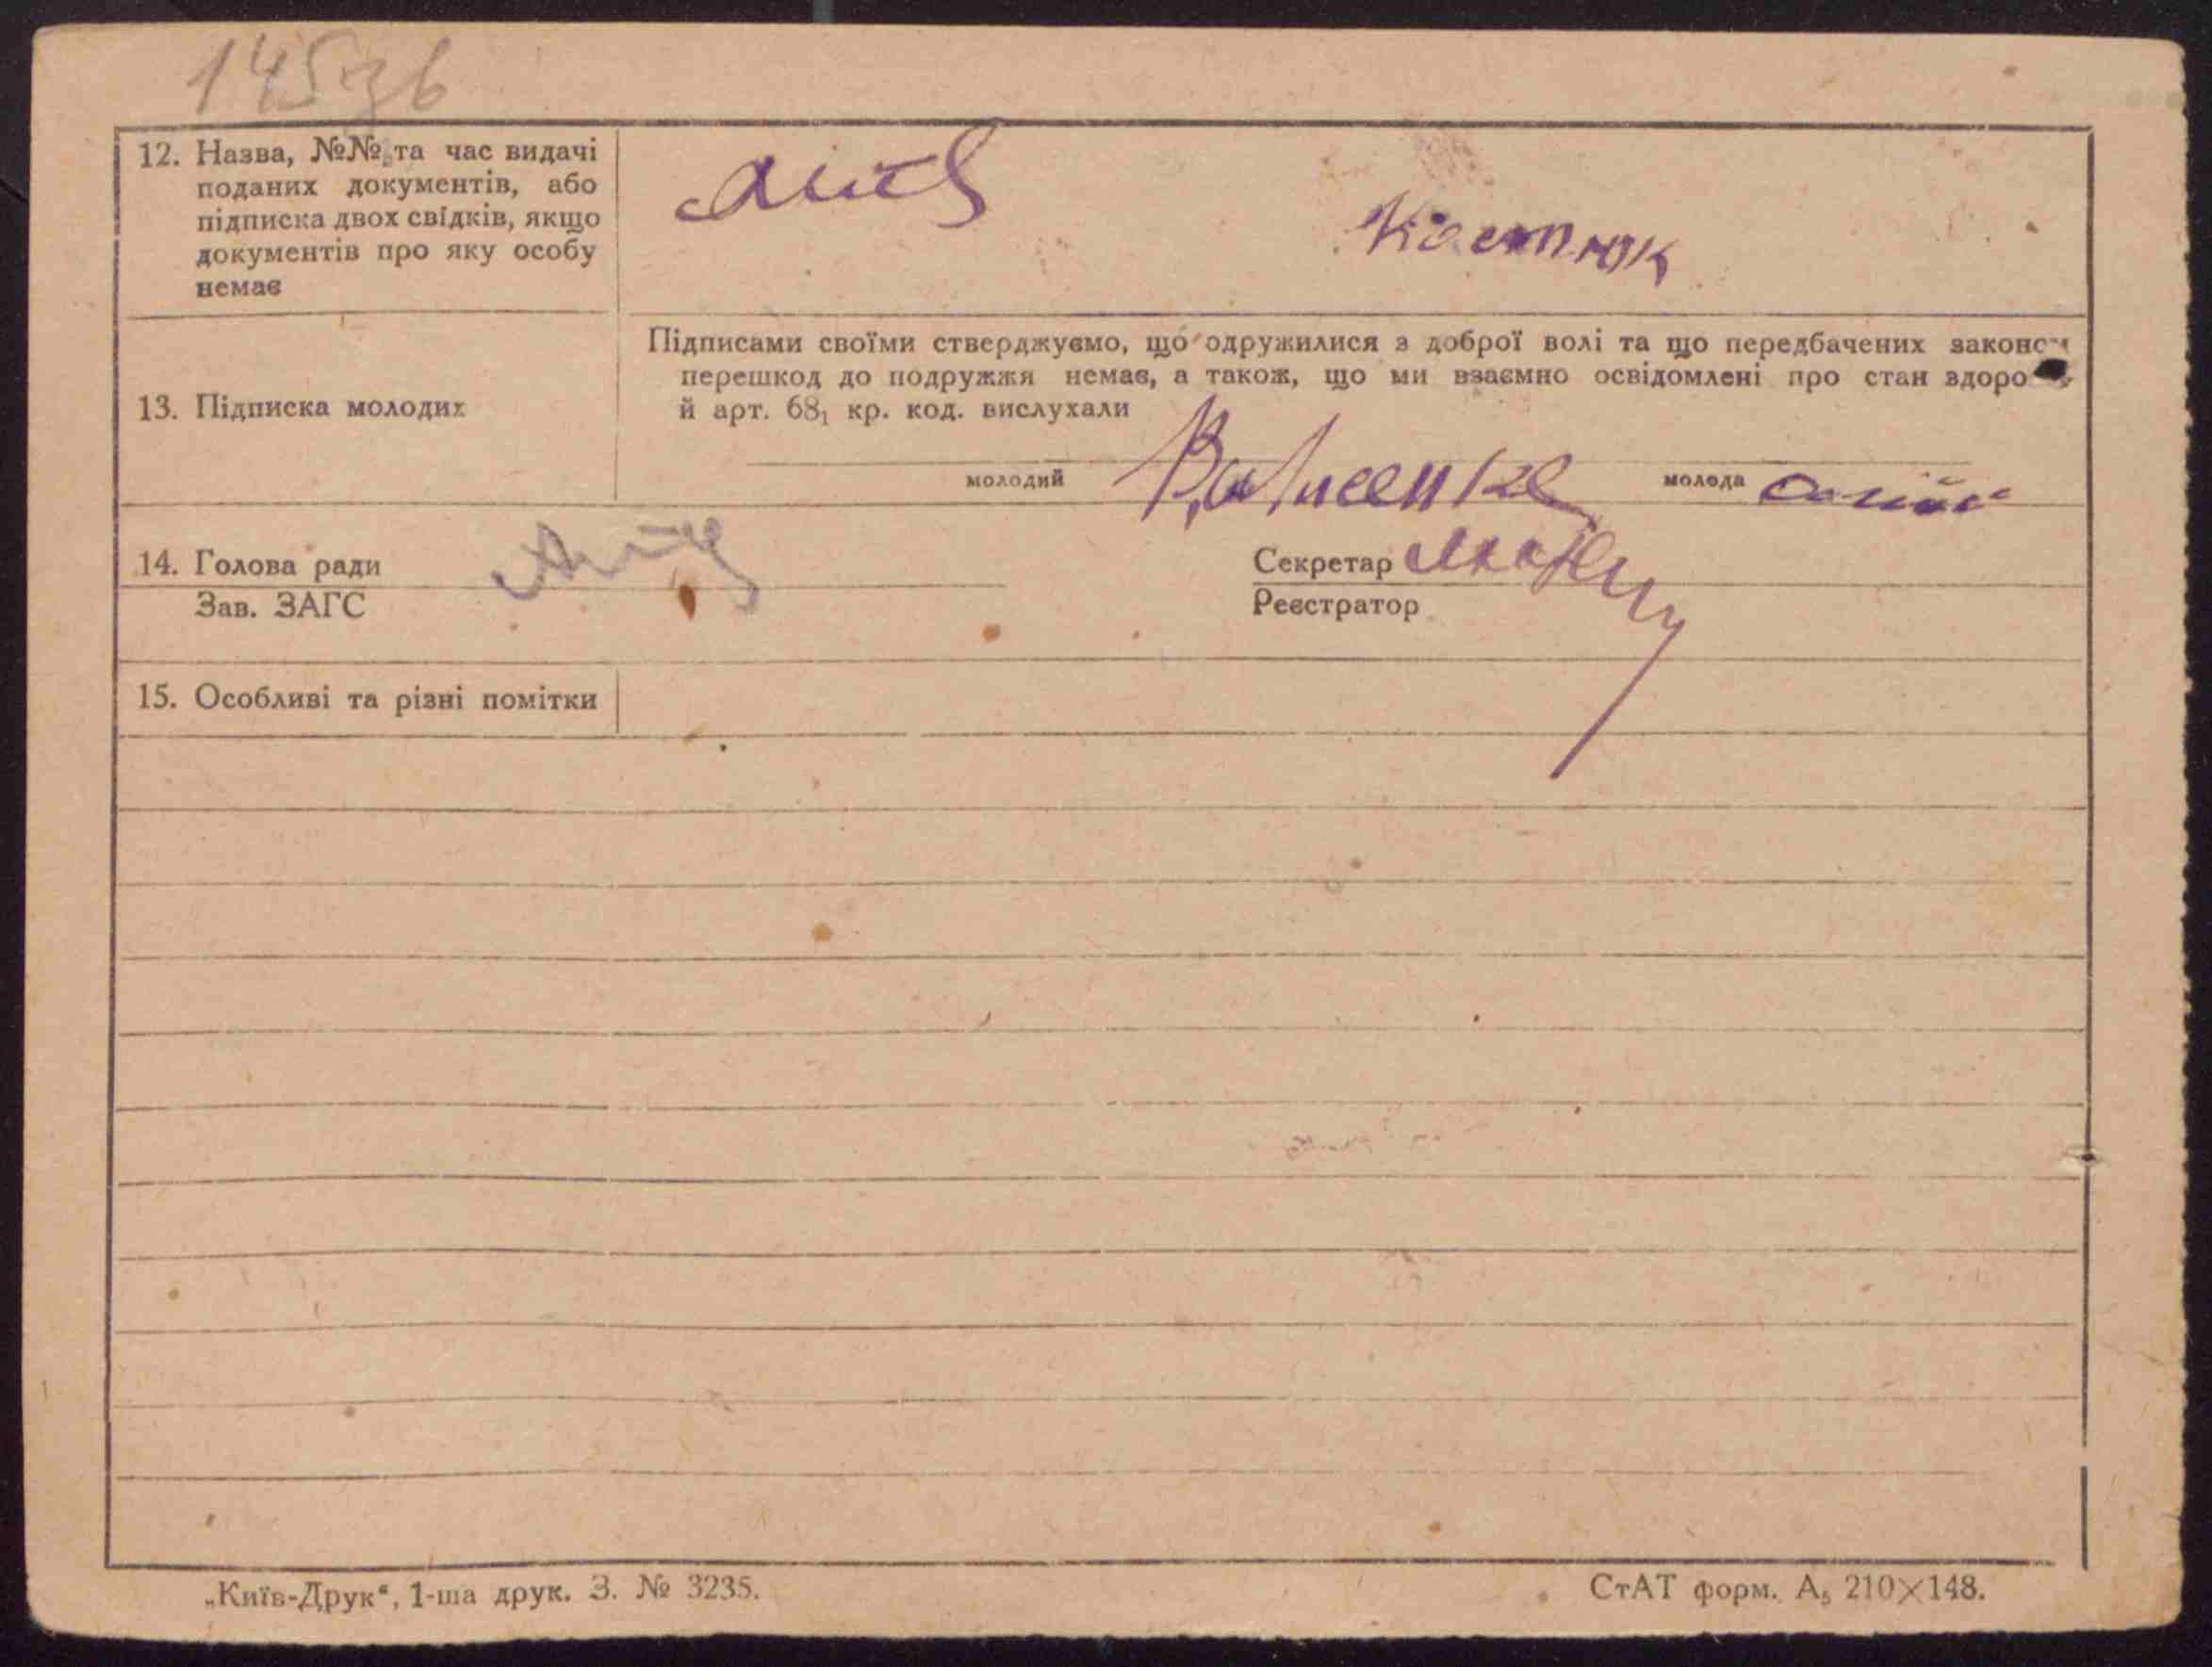 12. Назва, №№ та час видачі
поданих документів, або
підписка двох свідків, якщо
документів про яку особу
немає
Костюк
13. Підписка молодих
Підписами своїми стверджуємо, що одружилися з доброї волі та що передбачених законом
перешкод до подружжя немає, а також, що ми взаємно освідомлені про стан здоро
й арт. 68₁ кр. код. вислухали
молодий
молода
14. Голова ради
Секретар
Зав. ЗАГС
Реєстратор
15. Особливі та різні помітки
„Київ-Друк“, 1-ша друк. З. № 3235.
СтАТ форм. А₅ 210×148.